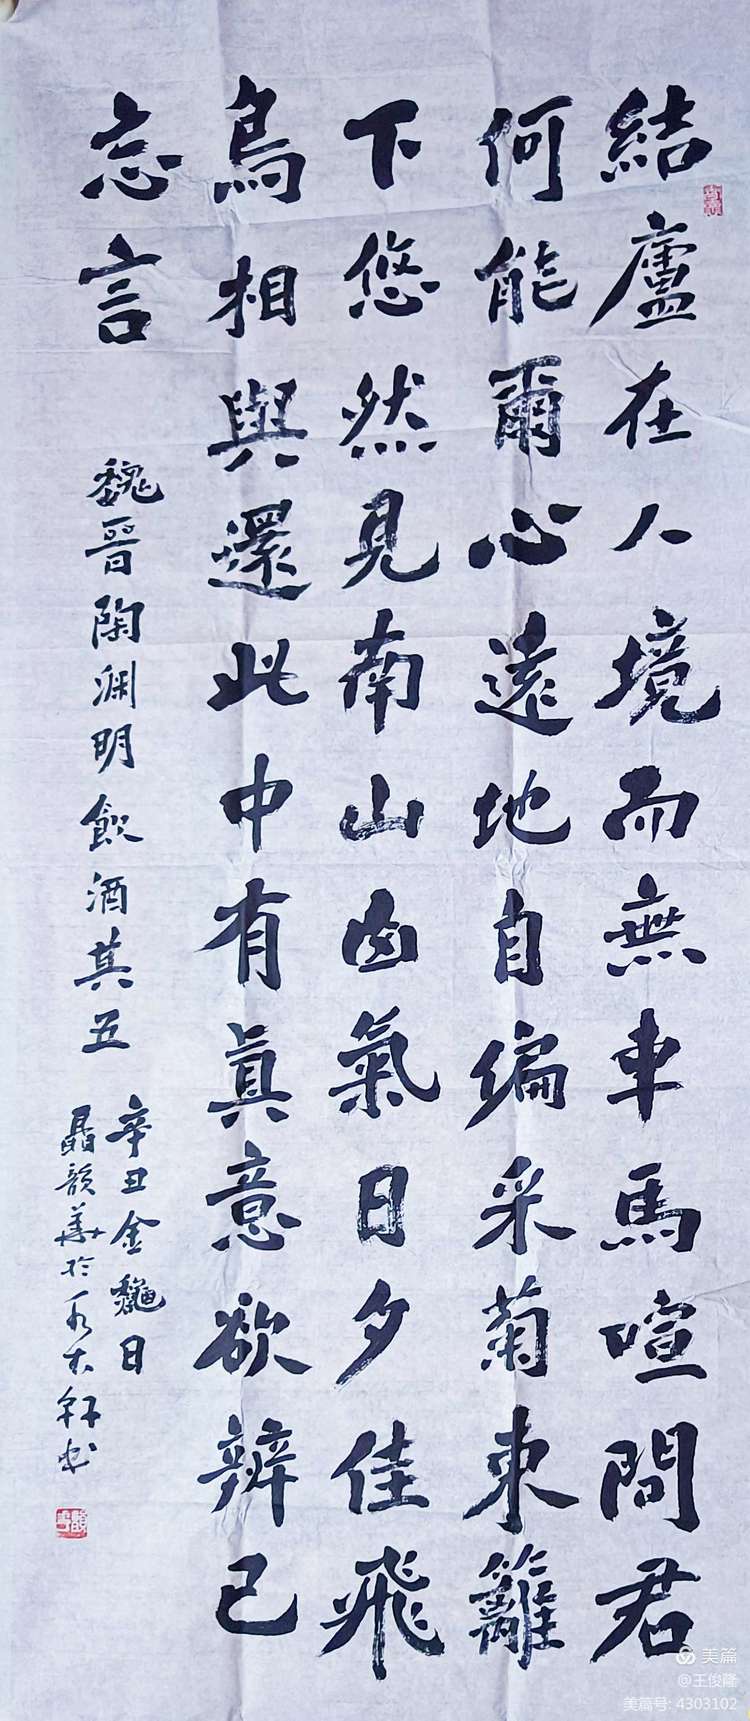 結廬在人境而無車馬喧問君
何能爾心遠地自編采菊東籬
下悠然見南山氣日夕佳飛
鳥相與還此中有眞意欲辨已
忘言
魏晉陶渊明飲酒其五
辛丑金龝日
韻華於軒书
美篇
@王俊隆
美篇号: 4303102